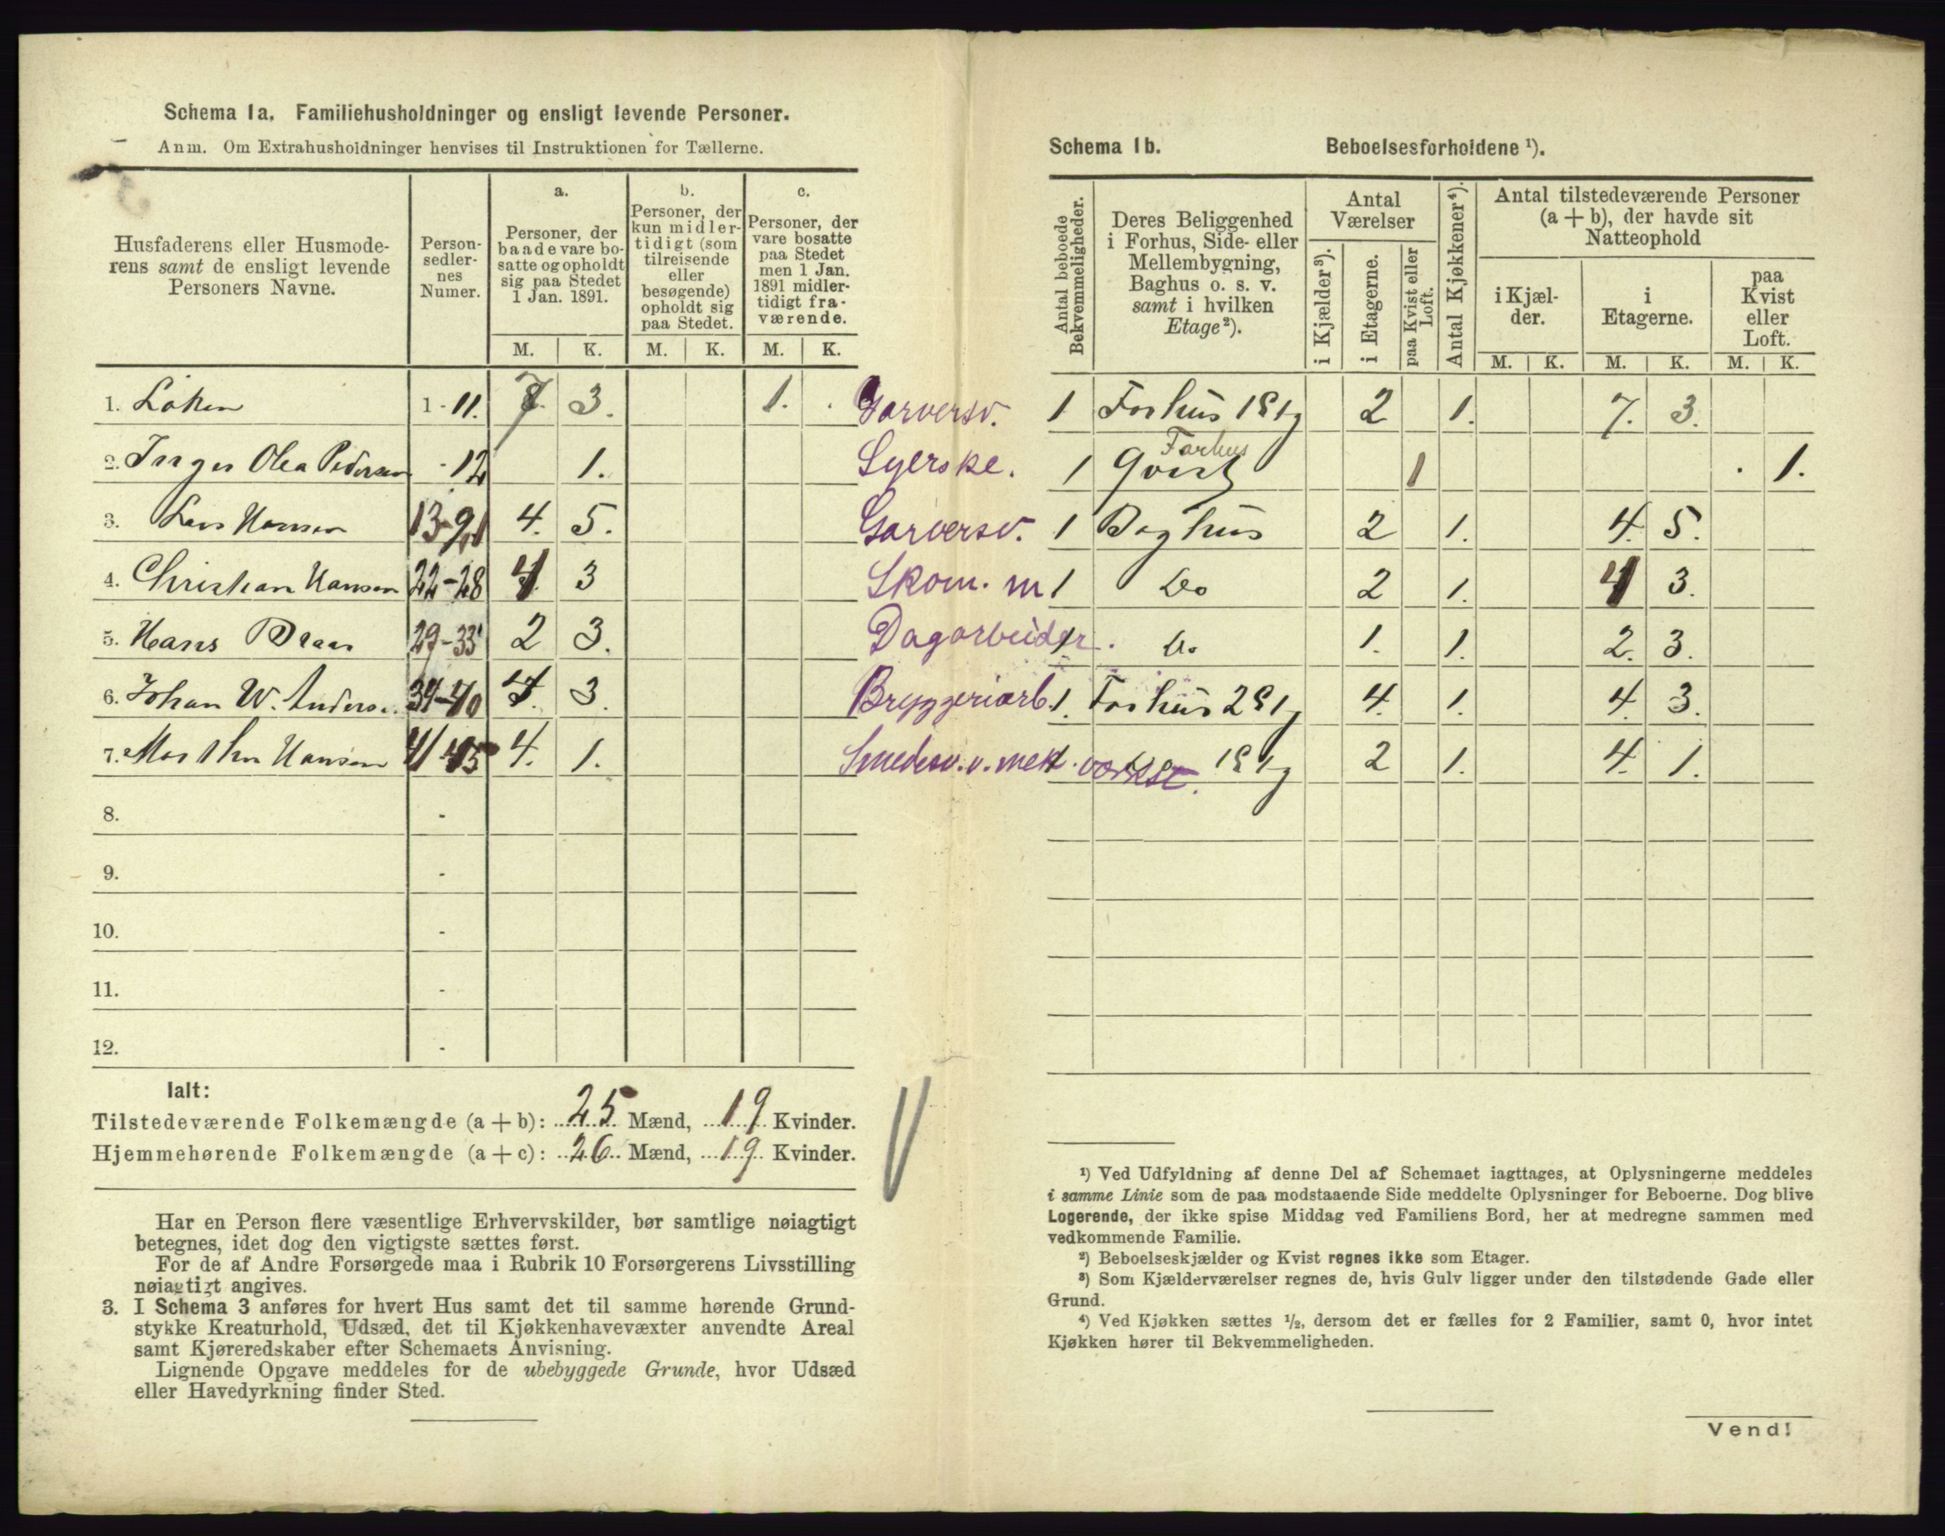 Schema 1a. Familiehusholdninger og ensligt levende Personer.
Anm. Om Extrahusholdninger henvises til Instruktionen for Tællerne.
Husfaderens eller Husmode-
rens samt de ensligt levende
Personers Navne.
Person-
sedler-
nes
Numer.
a.
Personer, der
baade vare bo-
satte og opholdt
sig paa Stedet
1 Jan. 1891.
b.
Personer, der
kun midler-
tidigt (som
tilreisende
eller
besøgende)
opholdt sig
paa Stedet.
c.
Personer, der
vare bosatte
paa Stedet
men 1 Jan.
1891 midler-
tidigt fra-
værende.
M. K. M. K. M. K.
1. Løken 1-11. 7 3. 1. Garversv.
2. Inger Olea Pedersen -12 1. Syerske.
3. Lars Hansen 13-21 4. 5. Garversv.
4. Christian Hansen 22-28 4 3 Skom. m
5. Hans Braa 29-33 2 3. Dagarbeider.
6. Johan W. Anders. 34-40 4 3. Bryggeriarb.
7. Marthin Hansen 41-45 4. 1. Smedesv. v. mek. værkst.
8. -
9. -
10. -
11. -
12. -
Ialt:
Tilstedeværende Folkemængde (a+b): 25 Mænd, 19 Kvinder.
Hjemmehørende Folkemængde (a+c): 26 Mænd, 19 Kvinder.
Har en Person flere væsentlige Erhvervskilder, bør samtlige nøiagtigt
betegnes, idet dog den vigtigste sættes først.
For de af Andre Forsørgede maa i Rubrik 10 Forsørgerens Livsstilling
nøiagtigt angives.
3. I Schema 3 anføres for hvert Hus samt det til samme hørende Grund-
stykke Kreaturhold, Udsæd, det til Kjøkkenhavevæxter anvendte Areal
samt Kjøreredskaber efter Schemaets Anvisning.
Lignende Opgave meddeles for de ubebyggede Grunde, hvor Udsæd
eller Havedyrkning finder Sted.
Schema 1b. Beboelsesforholdene ¹).
Antal beboede
Bekvemmeligheder.
Deres Beliggenhed
i Forhus, Side- eller
Mellembygning,
Baghus o. s. v.
samt i hvilken
Etage²).
Antal
Værelser
i Kjælder³).
i Etagerne.
paa Kvist eller
Loft.
Antal Kjøkkener⁴).
Antal tilstedeværende Personer
(a+b), der havde sit
Natteophold
i Kjæl-
der.
i
Etagerne.
paa
Kvist
eller
Loft.
M. K. M. K. M. K.
1 Forhus 1 Etg 2 1. 7. 3.
Forhus
1 Qvist 1 1.
1 Baghus 2 1. 4. 5.
1 Do 2 1. 4 3.
1 Do 1. 1. 2. 3.
1. Forhus 2 Etg 4. 1. 4. 3.
1 Etg 2 1. 4. 1.
¹) Ved Udfyldning af denne Del af Schemaet iagttages, at Oplysningerne meddeles
i samme Linie som de paa modstaaende Side meddelte Oplysninger for Beboerne. Dog blive
Logerende, der ikke spise Middag ved Familiens Bord, her at medregne sammen med
vedkommende Familie.
²) Beboelseskjælder og Kvist regnes ikke som Etager.
³) Som Kjælderværelser regnes de, hvis Gulv ligger under den tilstødende Gade eller
Grund.
⁴) Ved Kjøkken sættes ½, dersom det er fælles for 2 Familier, samt 0, hvor intet
Kjøkken hører til Bekvemmeligheden.
Vend!